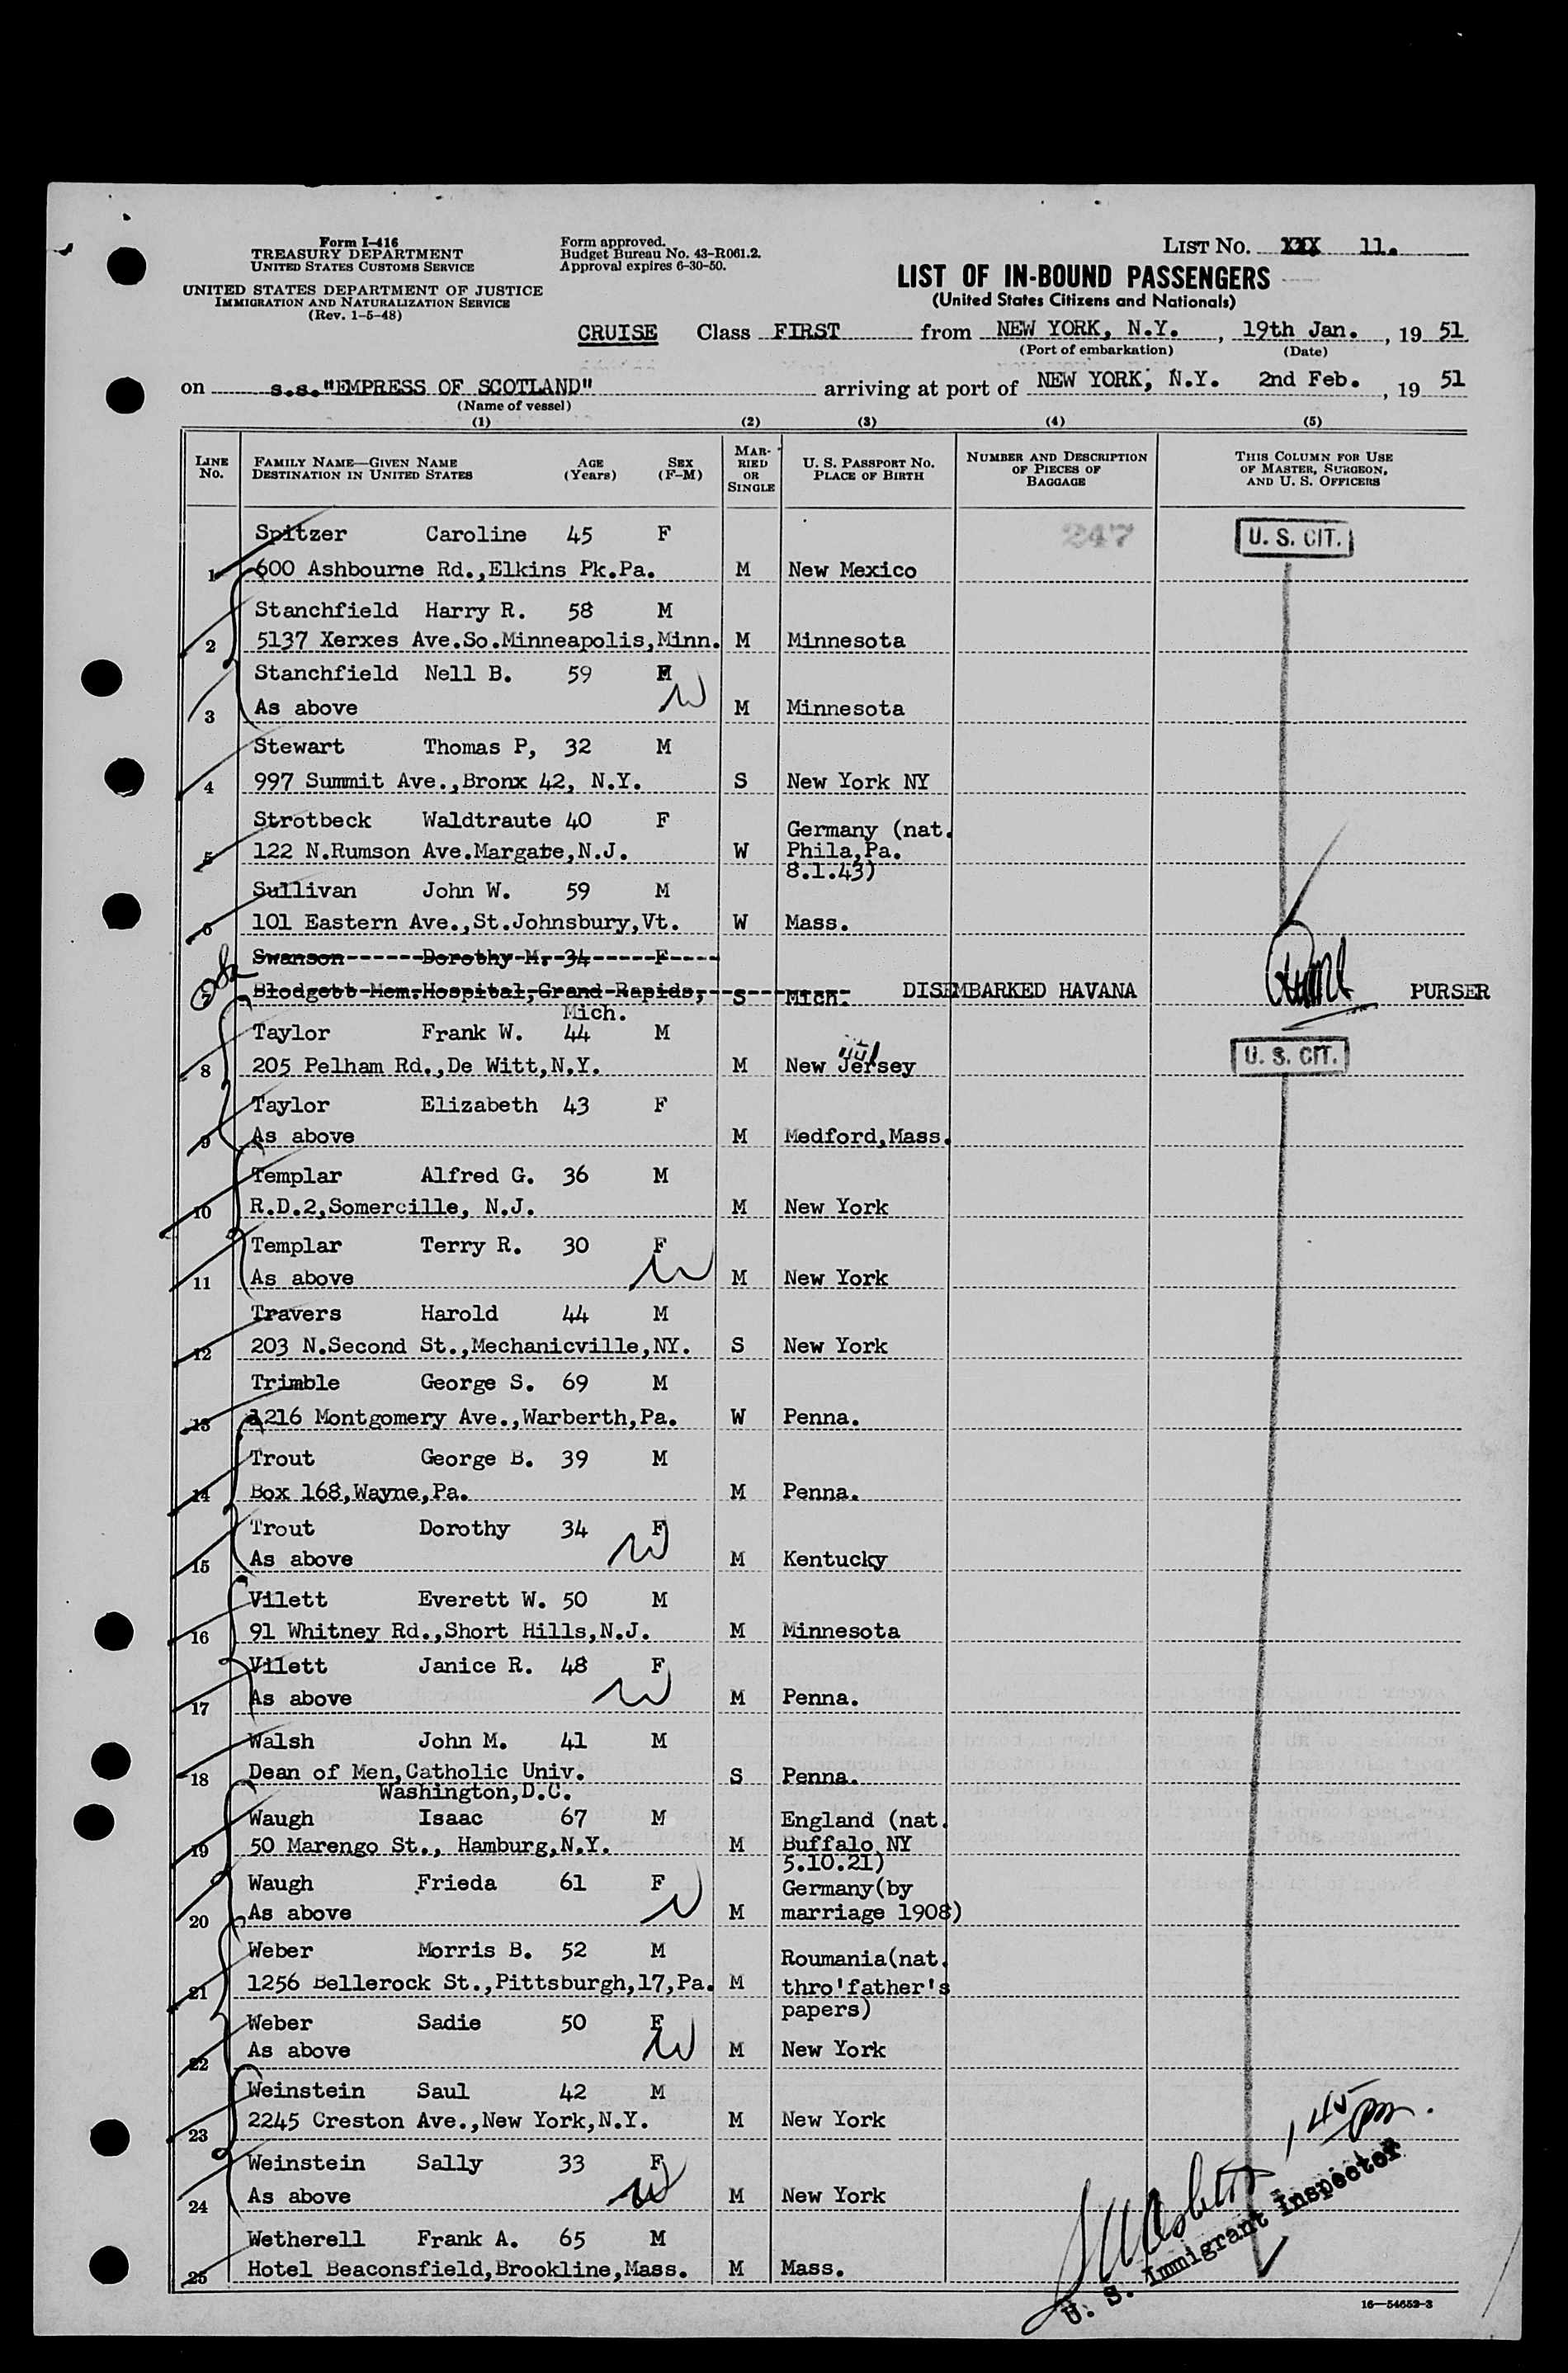 Form I-416
TREASURY DEPARTMENT
UNITED STATES CUSTOMS SERVICE
UNITED STATES DEPARTMENT OF JUSTICE
IMMIGRATION AND NATURALIZATION SERVICE
(Rev. 1-5-48)
Form approved.
Budget Bureau No. 43-R061.2.
Approval expires 6-30-50.
LIST NO. XXX 11.
LIST OF IN-BOUND PASSENGERS
(United States Citizens and Nationals)
CRUISE Class FIRST from NEW YORK, N.Y., 19th Jan., 19 51
(Port of embarkation) (Date)
on s.s."EMPRESS OF SCOTLAND" arriving at port of NEW YORK, N.Y. 2nd Feb., 19 51
(Name of vessel)
(1) (2) (3) (4) (5)
LINE NO. FAMILY NAME—GIVEN NAME DESTINATION IN UNITED STATES AGE (Years) SEX (F-M) MARRIED OR SINGLE U. S. PASSPORT NO. PLACE OF BIRTH NUMBER AND DESCRIPTION OF PIECES OF BAGGAGE THIS COLUMN FOR USE OF MASTER, SURGEON, AND U. S. OFFICERS
Spitzer Caroline 45 F 247 U. S. CIT.
1 600 Ashbourne Rd.,Elkins Pk.Pa. M New Mexico
Stanchfield Harry R. 58 M
2 5137 Xerxes Ave.So.Minneapolis,Minn. M Minnesota
Stanchfield Nell B. 59 F
3 As above M Minnesota
Stewart Thomas P, 32 M
4 997 Summit Ave.,Bronx 42, N.Y. S New York NY
Strotbeck Waldtraute 40 F Germany (nat.
5 122 N.Rumson Ave.Margate,N.J. W Phila,Pa.
8.1.43)
Sullivan John W. 59 M
6 101 Eastern Ave.,St.Johnsbury,Vt. W Mass.
Swanson Dorothy M. 34 F
7 Blodgett Mem.Hospital,Grand Rapids, S Mich. DISEMBARKED HAVANA PURSER
Mich.
Taylor Frank W. 44 M U. S. CIT.
8 205 Pelham Rd.,De Witt,N.Y. M New Jersey
Taylor Elizabeth 43 F
9 As above M Medford,Mass.
Templar Alfred G. 36 M
10 R.D.2,Somercille, N.J. M New York
Templar Terry R. 30 F
11 As above M New York
Travers Harold 44 M
12 203 N.Second St.,Mechanicville,NY. S New York
Trimble George S. 69 M
13 1216 Montgomery Ave.,Warberth,Pa. W Penna.
Trout George B. 39 M
14 Box 168,Wayne,Pa. M Penna.
Trout Dorothy 34 F
15 As above M Kentucky
Vilett Everett W. 50 M
16 91 Whitney Rd.,Short Hills,N.J. M Minnesota
Vilett Janice R. 48 F
17 As above M Penna.
Walsh John M. 41 M
18 Dean of Men,Catholic Univ. S Penna.
Washington,D.C.
Waugh Isaac 67 M England (nat.
19 50 Marengo St., Hamburg,N.Y. M Buffalo NY
5.10.21)
Waugh Frieda 61 F Germany(by
20 As above M marriage 1908)
Weber Morris B. 52 M Roumania(nat.
21 1256 Bellerock St.,Pittsburgh,17,Pa. M thro'father's
papers)
Weber Sadie 50 F
22 As above M New York
Weinstein Saul 42 M
23 2245 Creston Ave.,New York,N.Y. M New York
Weinstein Sally 33 F
24 As above M New York
Wetherell Frank A. 65 M
25 Hotel Beaconsfield,Brookline,Mass. M Mass.
1 45 pm.
U. S. Immigrant Inspector
16—54652-3